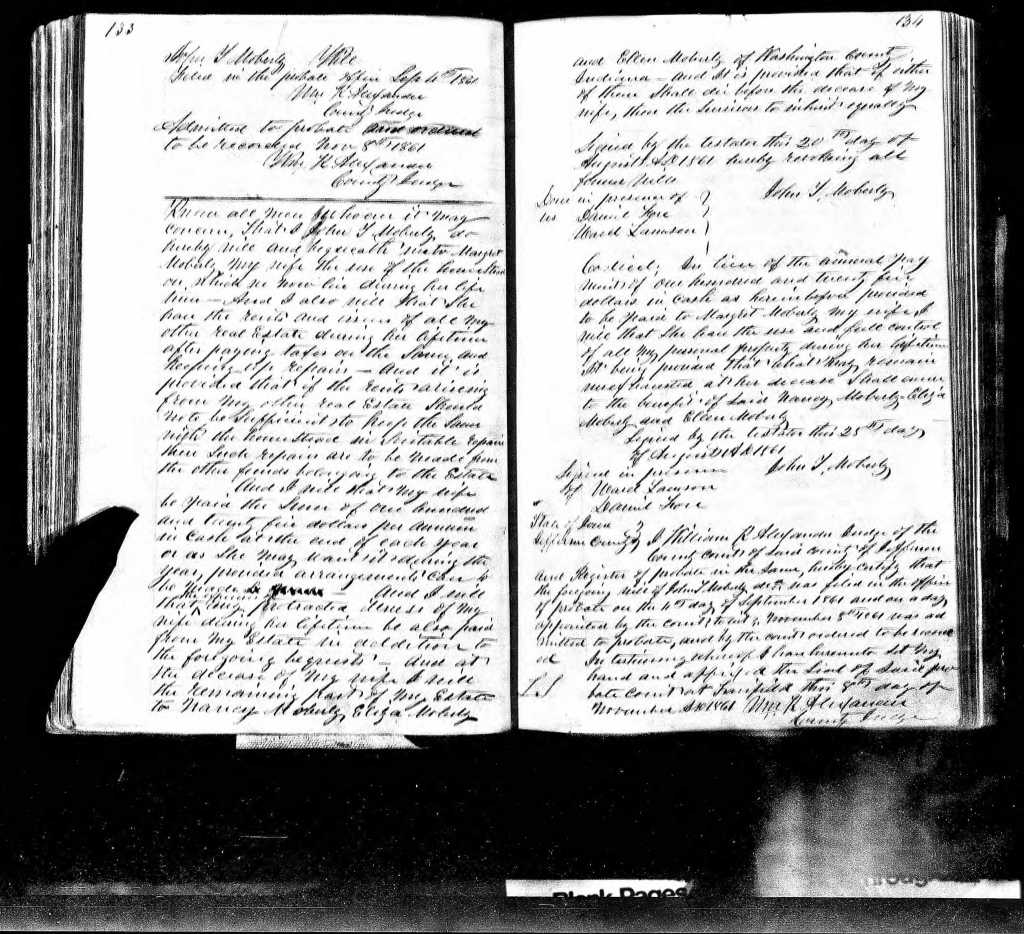 133
John T Moberly Will
Filed in the probate office Sept 4th 1861
Wm K Alexander
County Judge
Admitted to probate and ordered
to be recorded Nov 8th 1861
Wm K Alexander
County Judge
Know all men for whom it may
concern, That I John T Moberly do
hereby will and bequeath unto Margret
Moberly my wife the use of the homestead
on which we now live during her life
time - And I also will that she
have the rents and issues of all my
other real Estate during her lifetime
after paying taxes on the same and
keeping up repairs - And it is
provided that if the rents arising
from my other real Estate should
not be sufficient to keep the same
with the homestead in suitable repair
then such repairs are to be made from
the other funds belonging to the Estate
And I will that my wife
be paid the sum of one hundred
and twenty five dollars per annum
in cash at the end of each year
or as she may want it during the
year, provided arrangements can so
be made - And I will
that any protracted illness of my
wife during her lifetime be also paid
from my Estate in addition to
the foregoing bequests - And at
the decease of my wife I will
the remaining part of my Estate
to Nancy Moberly Eliza Moberly
134
and Ellen Moberly of Washington County
Indiana - And it is provided that if either
of them shall die before the decease of my
wife, then the survivors to inherit equally
Signed by the testator this 20th day of
August AD 1861 hereby revoking all
former wills
Done in presence of John T. Moberly
us Daniel
Ward Lamson
Codicil; In lieu of the annual pay
ment of one hundred and twenty five
dollars in cash as hereinbefore provided
to be paid to Margret Moberly my wife, I
will that she have the use and full control
of all my personal property during her lifetime
it being provided that what may remain
unexhausted at her decease shall enure
to the benefit of said Nancy Moberly Eliza
Moberly and Ellen Moberly
Signed by the testator this 25th day
of August AD 1861
Signed in presence John T. Moberly
of Ward Lamson
Daniel
State of Iowa
Jefferson County I William K Alexander Judge of the
County court of said county of Jefferson
and Register of probate in the same, hereby certify that
the foregoing will of John T Moberly decd was filed in the office
of probate on the 4th day of September 1861 and on a day
appointed by the court to wit; November 8th 1861 was ad
mitted to probate, and by the court ordered to be record
ed In testimony whereof I have hereunto set my
hand and affixed the seal of said pro
LS bate court at Fairfield this 8th day of
November AD 1861 Wm K Alexander
County Judge
Blank Pages